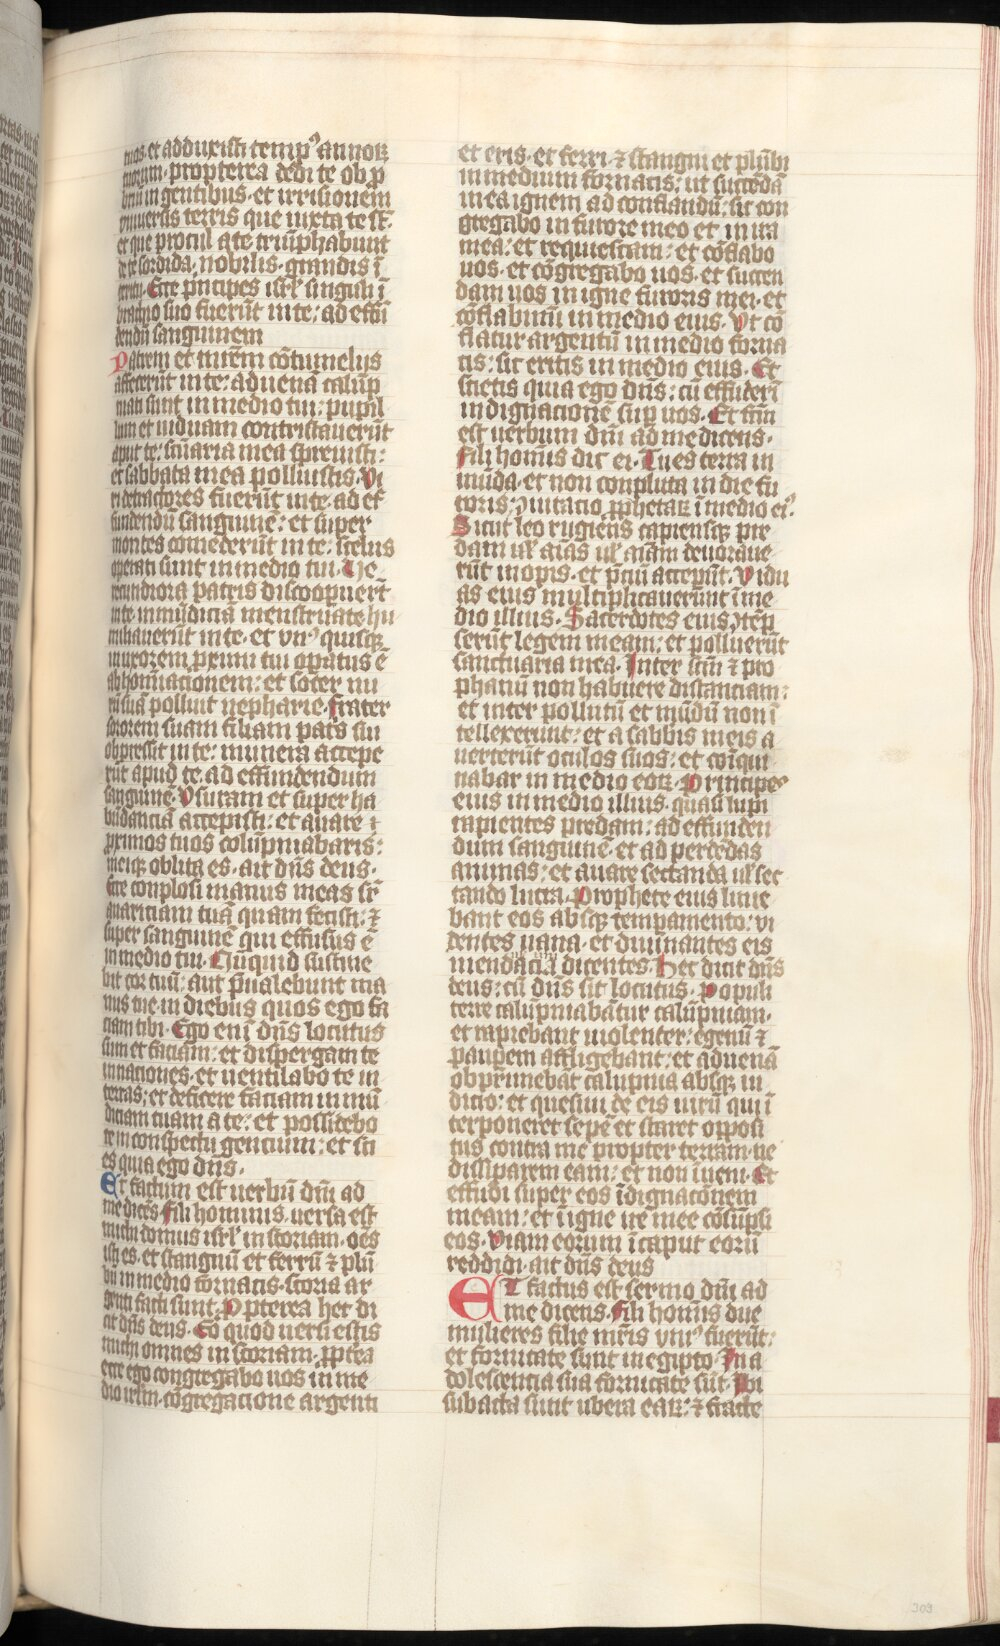 tuos et adduxisti temp⁹ annoꝝ
tuorum· propterea dedi te obp̄
briū in gentibus· et irrisionem
vniuersis terris que iuxta te st̄·
et que procul a te triūphabunt
de te sordida, nobilis· grandis ī
teritu· Ecce p̄ncipes isrl̄ singuli ī
brachio suo fuerūt in te; ad effū
dendū sanguinem
Patrem et mr̄em cōtumelijs
affecerūt in te; aduenā calūp
niati sunt in medio tui; pupil
lum et uiduam contristauerūt
aput te; sc̄uaria mea spreuisti;
et sabbata mea polluistis· Vi
ri detractores fuerūt in te· ad ef
fundendū sanguinē; et super
montes comederūt in te· scelus
operati sunt in medio tui· Ve
recundiora patris discooperuerūt
in te· inmūdiciā menstruate hu
miliauerūt in te· et vn⁹quisqꝫ
in uxorem p̄ximi tui opatus ē
abhominacionem; et socer nu
rū suā polluit nepharie· frater
sororem suam filiam patrs sui
obpressit in te; munera accepe
rūt apud te, ad effundendum
sanguinē· Vsuram et super ha
būdanciā accepisti; et auare
p̄ximos tuos colūpniabaris;
meiqꝫ oblita es· ait dn̄s deus·
Ecce conplosi manus meas sr̄
auariciam tuā quam fecisti; ⁊
super sanguinē qui effusus ē
in medio tui· Nūquid sustine
bit cor tuū; aut p̄ualebunt ma
nus tue in diebus quos ego fa
ciam tibi· Ego eni dn̄s locutus
sum et faciam; et dispergam te
in naciones· et uentilabo te in
terras; et deficere faciam in mū
diciam tuam a te; et possidebo
te in conspectu gencium; et sci
es quia ego dn̄s·
Et factum est uerbū dn̄i ad
me dicēs fili hominis· uersa est
michi domus isrl̄ in scoriam· oēs
isti es· et stangnū et ferrū ⁊ plū
bū in medio fornacis· scoria ar
genti facti sunt· Ppterea hec di
cit dn̄s deus· Eo quod uersi estis
michi omnes in scoriam· ꝓpterea
ecce ego congregabo uos in me
dio irlm̄· cōgregacione argenti
et eris· et ferri· ⁊ stangni et plūbi
in medium fornacis; ut succēdā
in ea ignem ad conflandū; sic con
gregabo in furore meo et in ira
mea; et requiescam; et cōflabo
uos· et cōgregabo uos· et succen
dam uos in igne furoris mei· et
cōflabimī in medio eius· Vt cō
flatur argentū in medio forna
cis; sic eritis in medio eius· Et
scietis quia ego dn̄s; cū effuderī
indignacionē sup̄ uos· Et fc̄m
est uerbum dn̄i ad me dicens·
fili hominis dic ei· Tu es terra in
mūda· et non conpluta in die fu
roris; Ꝯiuracio ꝓphetaꝝ ī medio ei⁹·
Sicut leo rugiens capiensqꝫ pre
dam ul̄ aīas ul̄ aīam deuoraue
rūt inopis· et p̄ciū acceperūt· Vidu
as eius multiplicauerunt ī me
dio illius· Sacerdotes eius ꝯtēp
serūt legem meam; et polluerūt
sanctuaria mea· Inter sc̄m ⁊ pro
phanū non habuere distanciam;
et inter pollutū et mūdū non ī
tellexerunt; et a sabbis meis a
uerterūt oculos suos; et coīqui
nabar in medio eoꝝ· Principes
eius in medio illius· quasi lupi
rapientes predam; ad effunden
dum sanguinē· et ad perdēdas
animas; et auare sectanda ul̄ sec
tando lucra· Prophete eius linie
bant eos absqꝫ tempamento; vi
dentes uana· et diuinantes eis
mendaciā dicentes· Hec dicit dn̄s
deus; cū dn̄s sit locutus· Populi
terre calūpniabātur calūpniam·
et rapiebant uiolenter; egenū ⁊
pauꝑem affligebant; et aduenā
obprimebāt calupnia absqꝫ iu
dicio; et quesiui de eis uirū qui ī
terponeret sepē et staret opposi
tus contra me propter terram· ne
dissiparem eam; et non iueni· Et
effudi super eos īdignacōnem
meam; et ī igne ire mee cōsūpsi
eos· Viam eorum ī caput eorū
reddidi· ait dn̄s deus
ET factus est sermo dn̄i ad
me dicens· Fili hoīnis due
mulieres filie mr̄is vni⁹ fuerūt;
et fornicate sunt in egipto· In a
dolescencia sua fornicate sūt· Ibi
subacta sunt ubera eaꝝ; ⁊ fracte
303